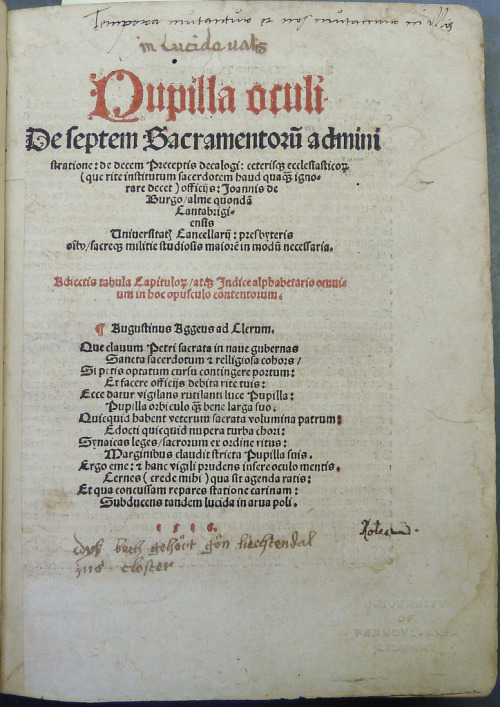 Tempora mutantur et nos mutamur in illis
in Lucida valis
Pupilla oculi
De septem Sacramentorū admini
stratione: de decem Preceptis decalogi: ceterisqꝫ ecclesiasticoꝝ
(que rite institutum sacerdotem haud quaqꝫ igno-
rare decet) officijs: Joannis de
Burgo/alme quondā
Cantabrigi-
ensis
Universitatꝭ Cancellarij: presbyteris
oīb⁹/sacreqꝫ militie studiosis maiorē in modū necessaria.
Adiectis tabula Capituloꝝ/atqꝫ Indice alphabetario omni-
um in hoc opusculo contentorum.
¶ Augustinus Aggeus ad Clerum.
Que clauum Petri sacrata in naue gubernas
Sancta sacerdotum ⁊ relligiosa cohors/
Si petis optatum cursu contingere portum:
Et facere officijs debita rite tuis:
Ecce datur vigilans rutilanti luce Pupilla:
Pupilla orbiculo qꝫ bene larga suo.
Quicquid habent veterum sacrata volumina patrum:
Edocti quicquid nupera turba chori:
Synaicas leges/sacrorum ex ordine ritus:
Marginibus claudit stricta Pupilla suis.
Ergo eme: ⁊ hanc vigili prudens insere oculo mentis.
Cernes (crede mihi) qua sit agenda ratis:
Et qua concussam repares statione carinam:
Subducens tandem lucida in arua poli.
1516.
buch gehört gön liechtendal
closter
UNIVERSITY
OF
PENNSYLVANIA
LIBRARY